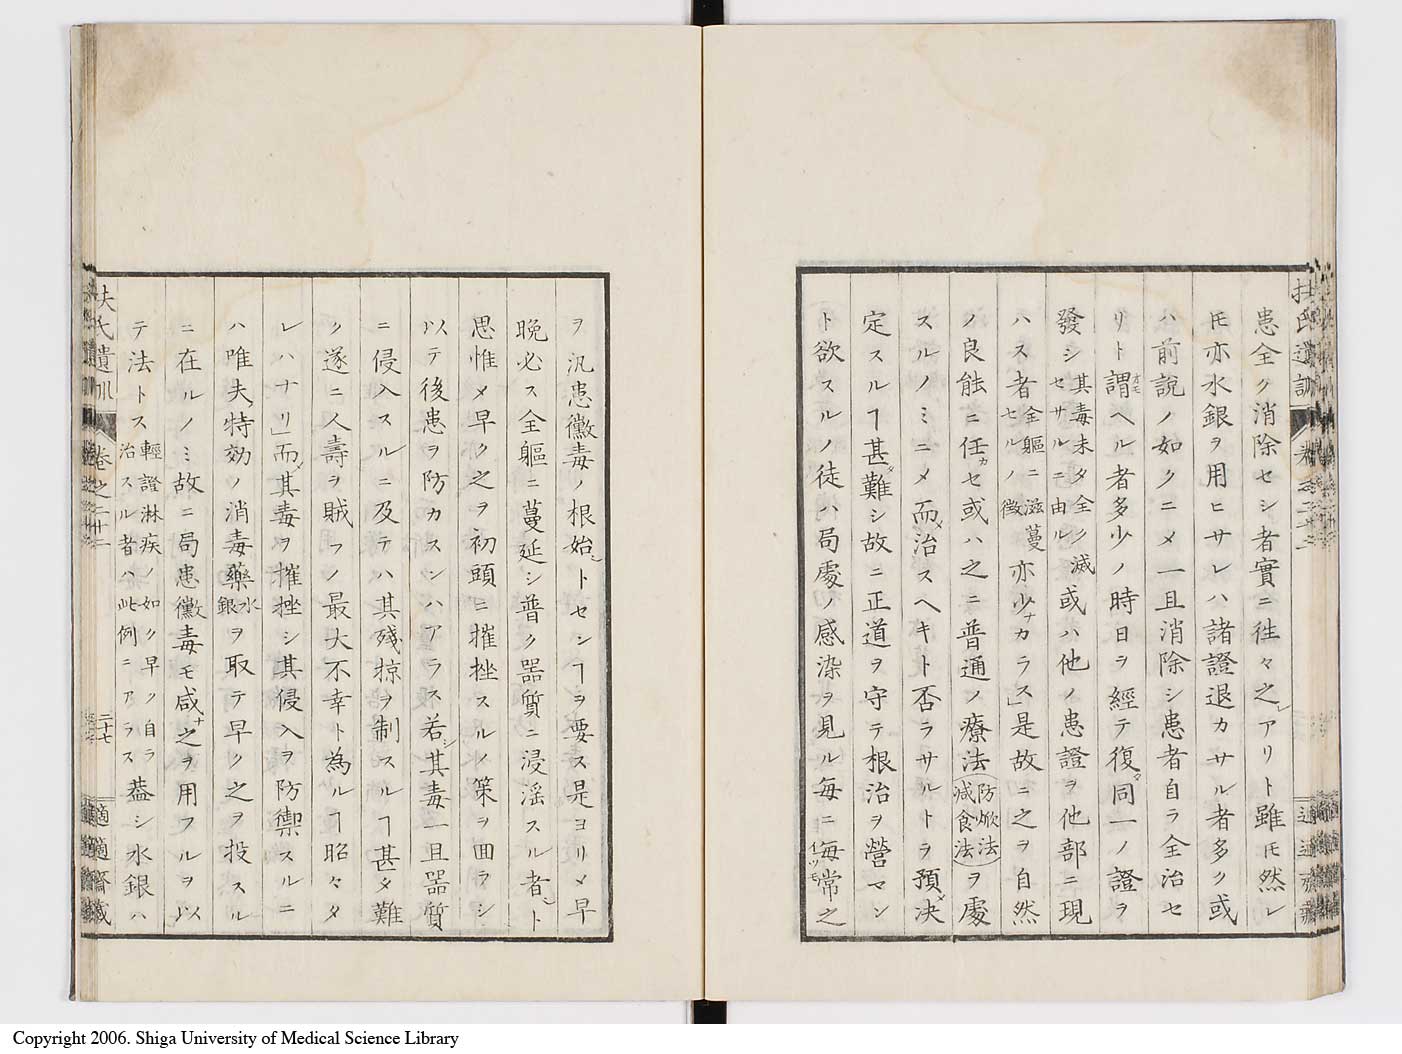 患全ク消除セシ者實ニ徃々之アリト雖𪜈然レ
𪜈亦水銀ヲ用ヒサレハ諸證退カサル者多ク或
ハ前説ノ如クニ〆一旦消除シ患者自ラ全治セ
リト謂オモヘル者多少ノ時日ヲ經テ復タ同一ノ證ヲ
發シ其毒未タ全ク滅セサルニ由ル或ハ他ノ患證ヲ他部ニ現
ハス者全軀ニ滋蔓セルノ徴亦少ナカラス」是故ニ之ヲ自然
ノ良能ニ任カセ或ハ之ニ普通ノ療法防焮法減食法ヲ處
スルノミニ〆而〆治スヘキト否ラサルトヲ預メ决
定スルヿ甚タ難シ故ニ正道ヲ守テ根治ヲ營マン
ト欲スルノ徒ハ局處ノ感染ヲ見ル毎ニ毎常イツモ之
ヲ汎患黴毒ノ根始トセンヿヲ要ス是ヨリ〆早
晩必ス全軀ニ蔓延シ普ク器質ニ浸淫スル者ト
思惟〆早ク之ヲ初頭ニ摧挫スルノ策ヲ囬ラシ
以テ後患ヲ防カスンハアラス若シ其毒一旦器質
ニ侵入スルニ及テハ其殘掠ヲ制スルヿ甚タ難
ク遂ニ人壽ヲ賊フノ最大不幸ト為ルヿ昭々タ
レハナリ」而〆其毒ヲ摧挫シ其侵入ヲ防禦スルニ
ハ唯夫特効ノ消毒藥水銀ヲ取テ早ク之ヲ投スル
ニ在ルノミ故ニ局患黴毒モ咸ナ之ヲ用フルヲ以
テ法トス輕證淋疾ノ如ク早ク自ラ治スル者ハ此例ニアラス葢シ水銀ハ
扶氏遺訓
卷之二十二
二十七
適適齋藏
Copyright 2006. Shiga University of Medical Science Library